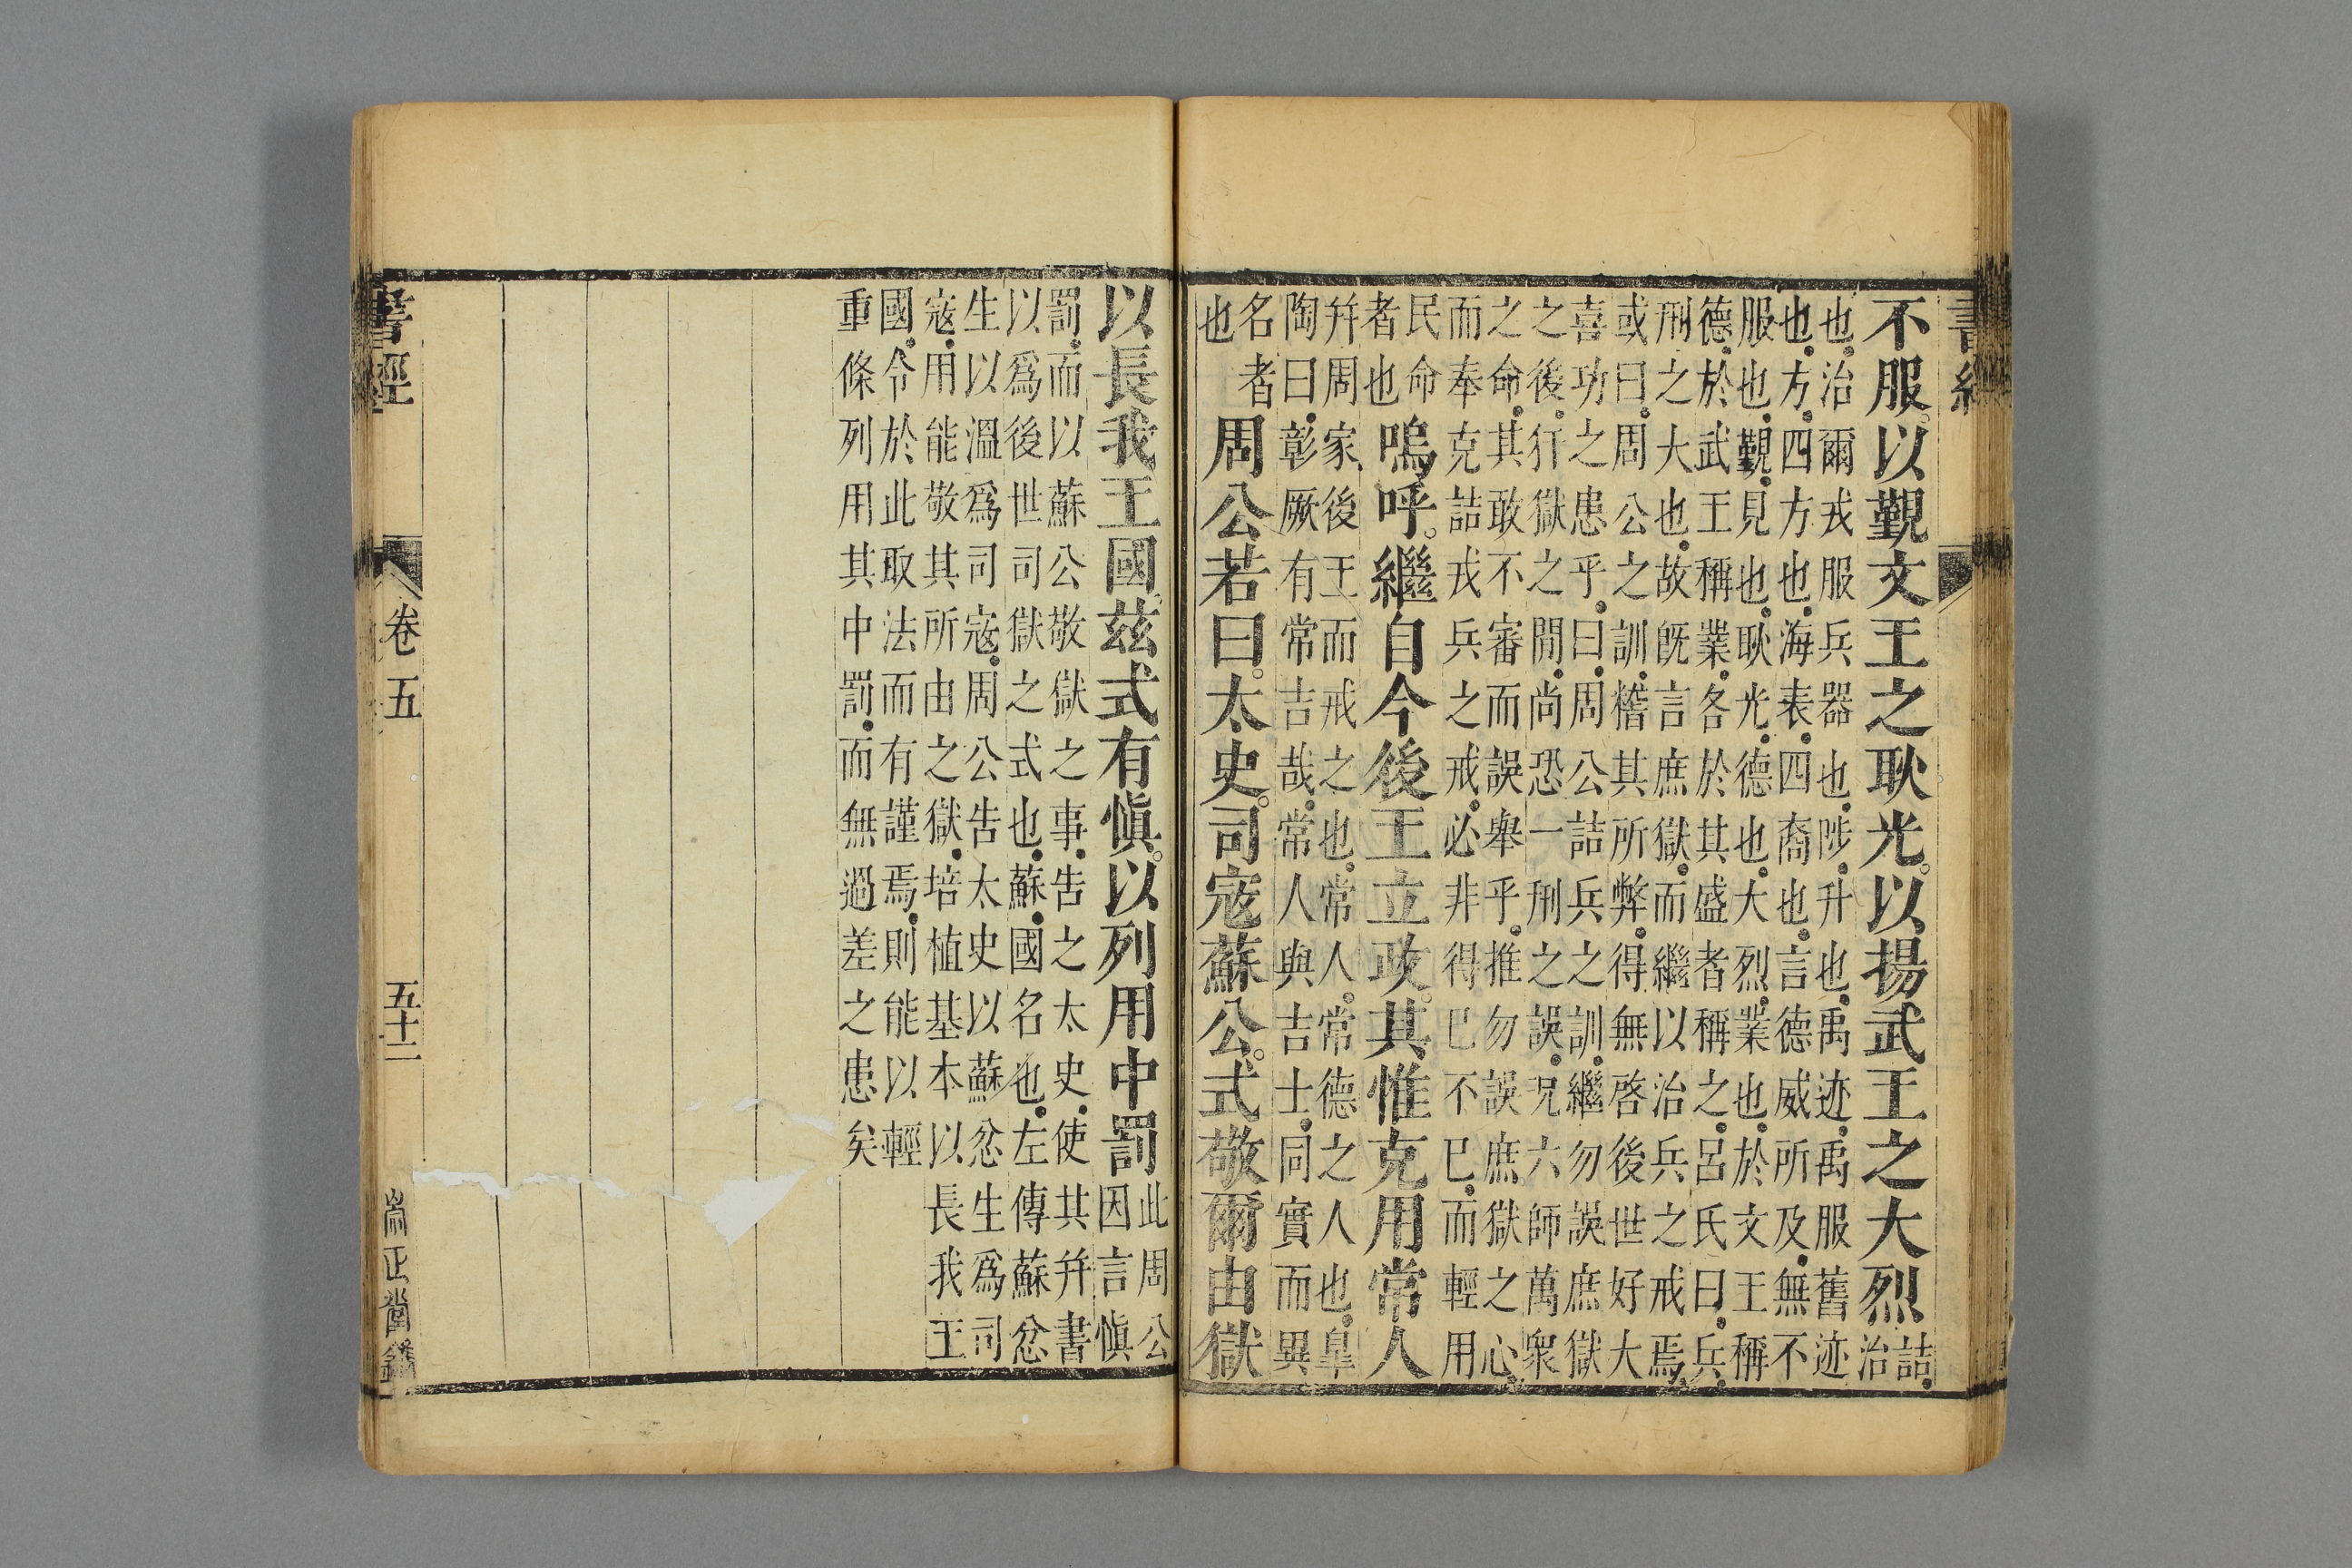 書經
不服。以覲文王之耿光。以揚武王之大烈詰
治
也治爾戎服兵器也陟升也禹迹禹服舊迹
也方四方也海表四裔也言德威所及無不
服也覲見也耿光德也大烈業也於文王稱
德於武王稱業各於其盛者稱之呂氏曰兵
刑之大也故旣言庶獄而繼以治兵之戒焉
或曰周公之訓稽其所弊得無啓後世好大
喜功之患乎曰周公詰兵之訓繼勿誤庶獄
之後犴獄之間尚恐一刑之誤況六師萬衆
之命其敢不審而誤舉乎推勿誤庶獄之心
而奉克詰戎兵之戒必非得已不已而輕用
民命
者也
嗚呼。繼自今後王立政。其惟克用常人
幷周家後王而戒之也常人常德之人也皐
陶曰彰厥有常吉哉常人與吉士同實而異
名者
也
周公若曰。太史。司寇蘇公。式敬爾由獄
以長我王國。茲式有愼。以列用中罰
此周公
因言愼
罰而以蘇公敬獄之事告之太史使其幷書
以爲後世司獄之式也蘇國名也左傳蘇忿
生以溫爲司寇周公告太史以蘇忿生爲司
寇用能敬其所由之獄培植基本以長我王
國令於此取法而有謹焉則能以輕
重條列用其中罰而無過差之患矣
書經 卷五 五十二 崇正堂鐫